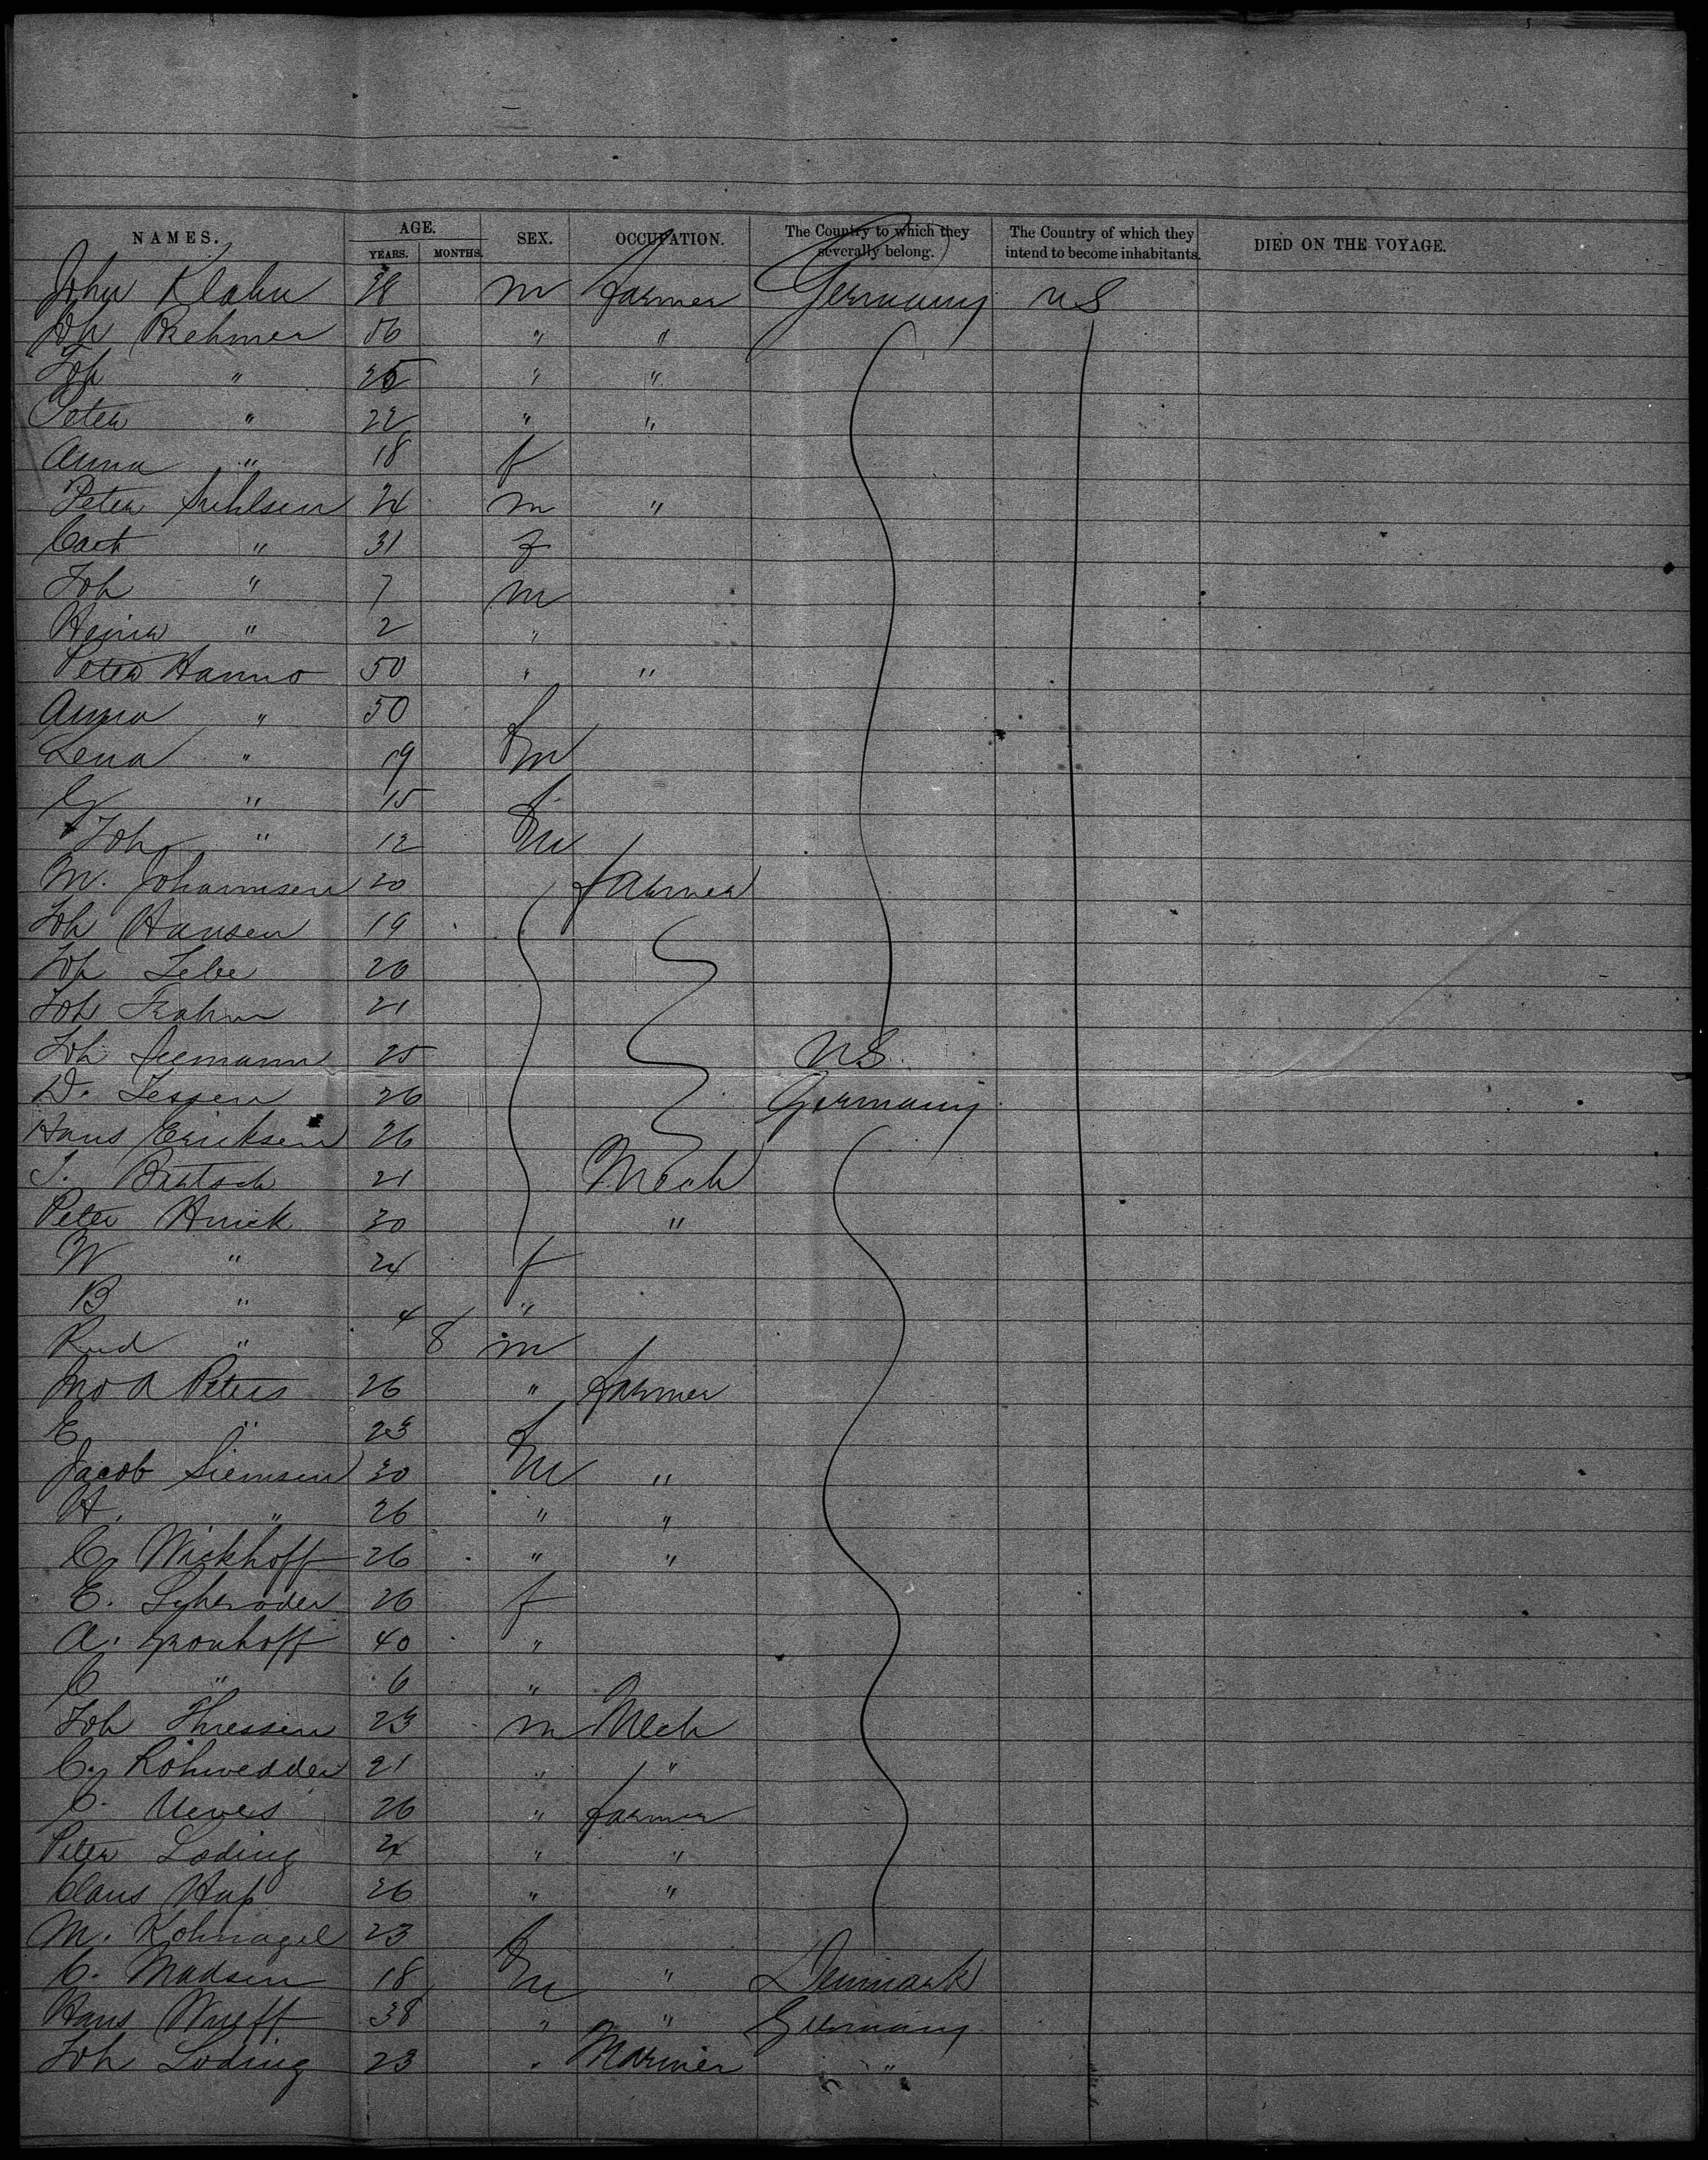 NAMES. AGE. SEX. OCCUPATION. The Country to which they severally belong. The Country of which they intend to become inhabitants. DIED ON THE VOYAGE.
YEARS. MONTHS.
John Klahn 38 m farmer Germany US
Joh Brehmer 56 " "
Joh " 25 " "
Peter " 22 " "
Anna " 18 f
Peter 24 m "
Cath " 31 f
Joh " 7 m
Heinr " 2 "
Peter Hanno 50 " "
Anna " 50 f
Lena " 19 m
G " 15 f
Joh " 12 m
M. Johannsen 20 farmer
Joh Hansen 19
Joh Lebe 20
Joh Frahm 21
Joh 25 US
D. Jessen 26 Germany
Hans Ericksen 26
J. Bratsch 21 Mech
Peter Hinck 30 "
W " 24 f
B " 4 "
Rud " 8 m
Jno A Peters 26 " farmer
E " 23 f
Jacob Siemsen 30 m "
H. " 26 " "
C. Wickhoff 26 " "
E. Schroder 26 f
A. Gronhoff 40 "
C " 6 "
Joh Thiessen 23 m Mech
C. Rohwedder 21 " "
C. 26 " farmer
Peter Loding 24 " "
Claus Hap 26 " "
M. Kohnagel 23 f
C. Madsen 18 m " Denmark
Hans Wulff 38 " " Germany
Joh Loding 23 " Mariner "